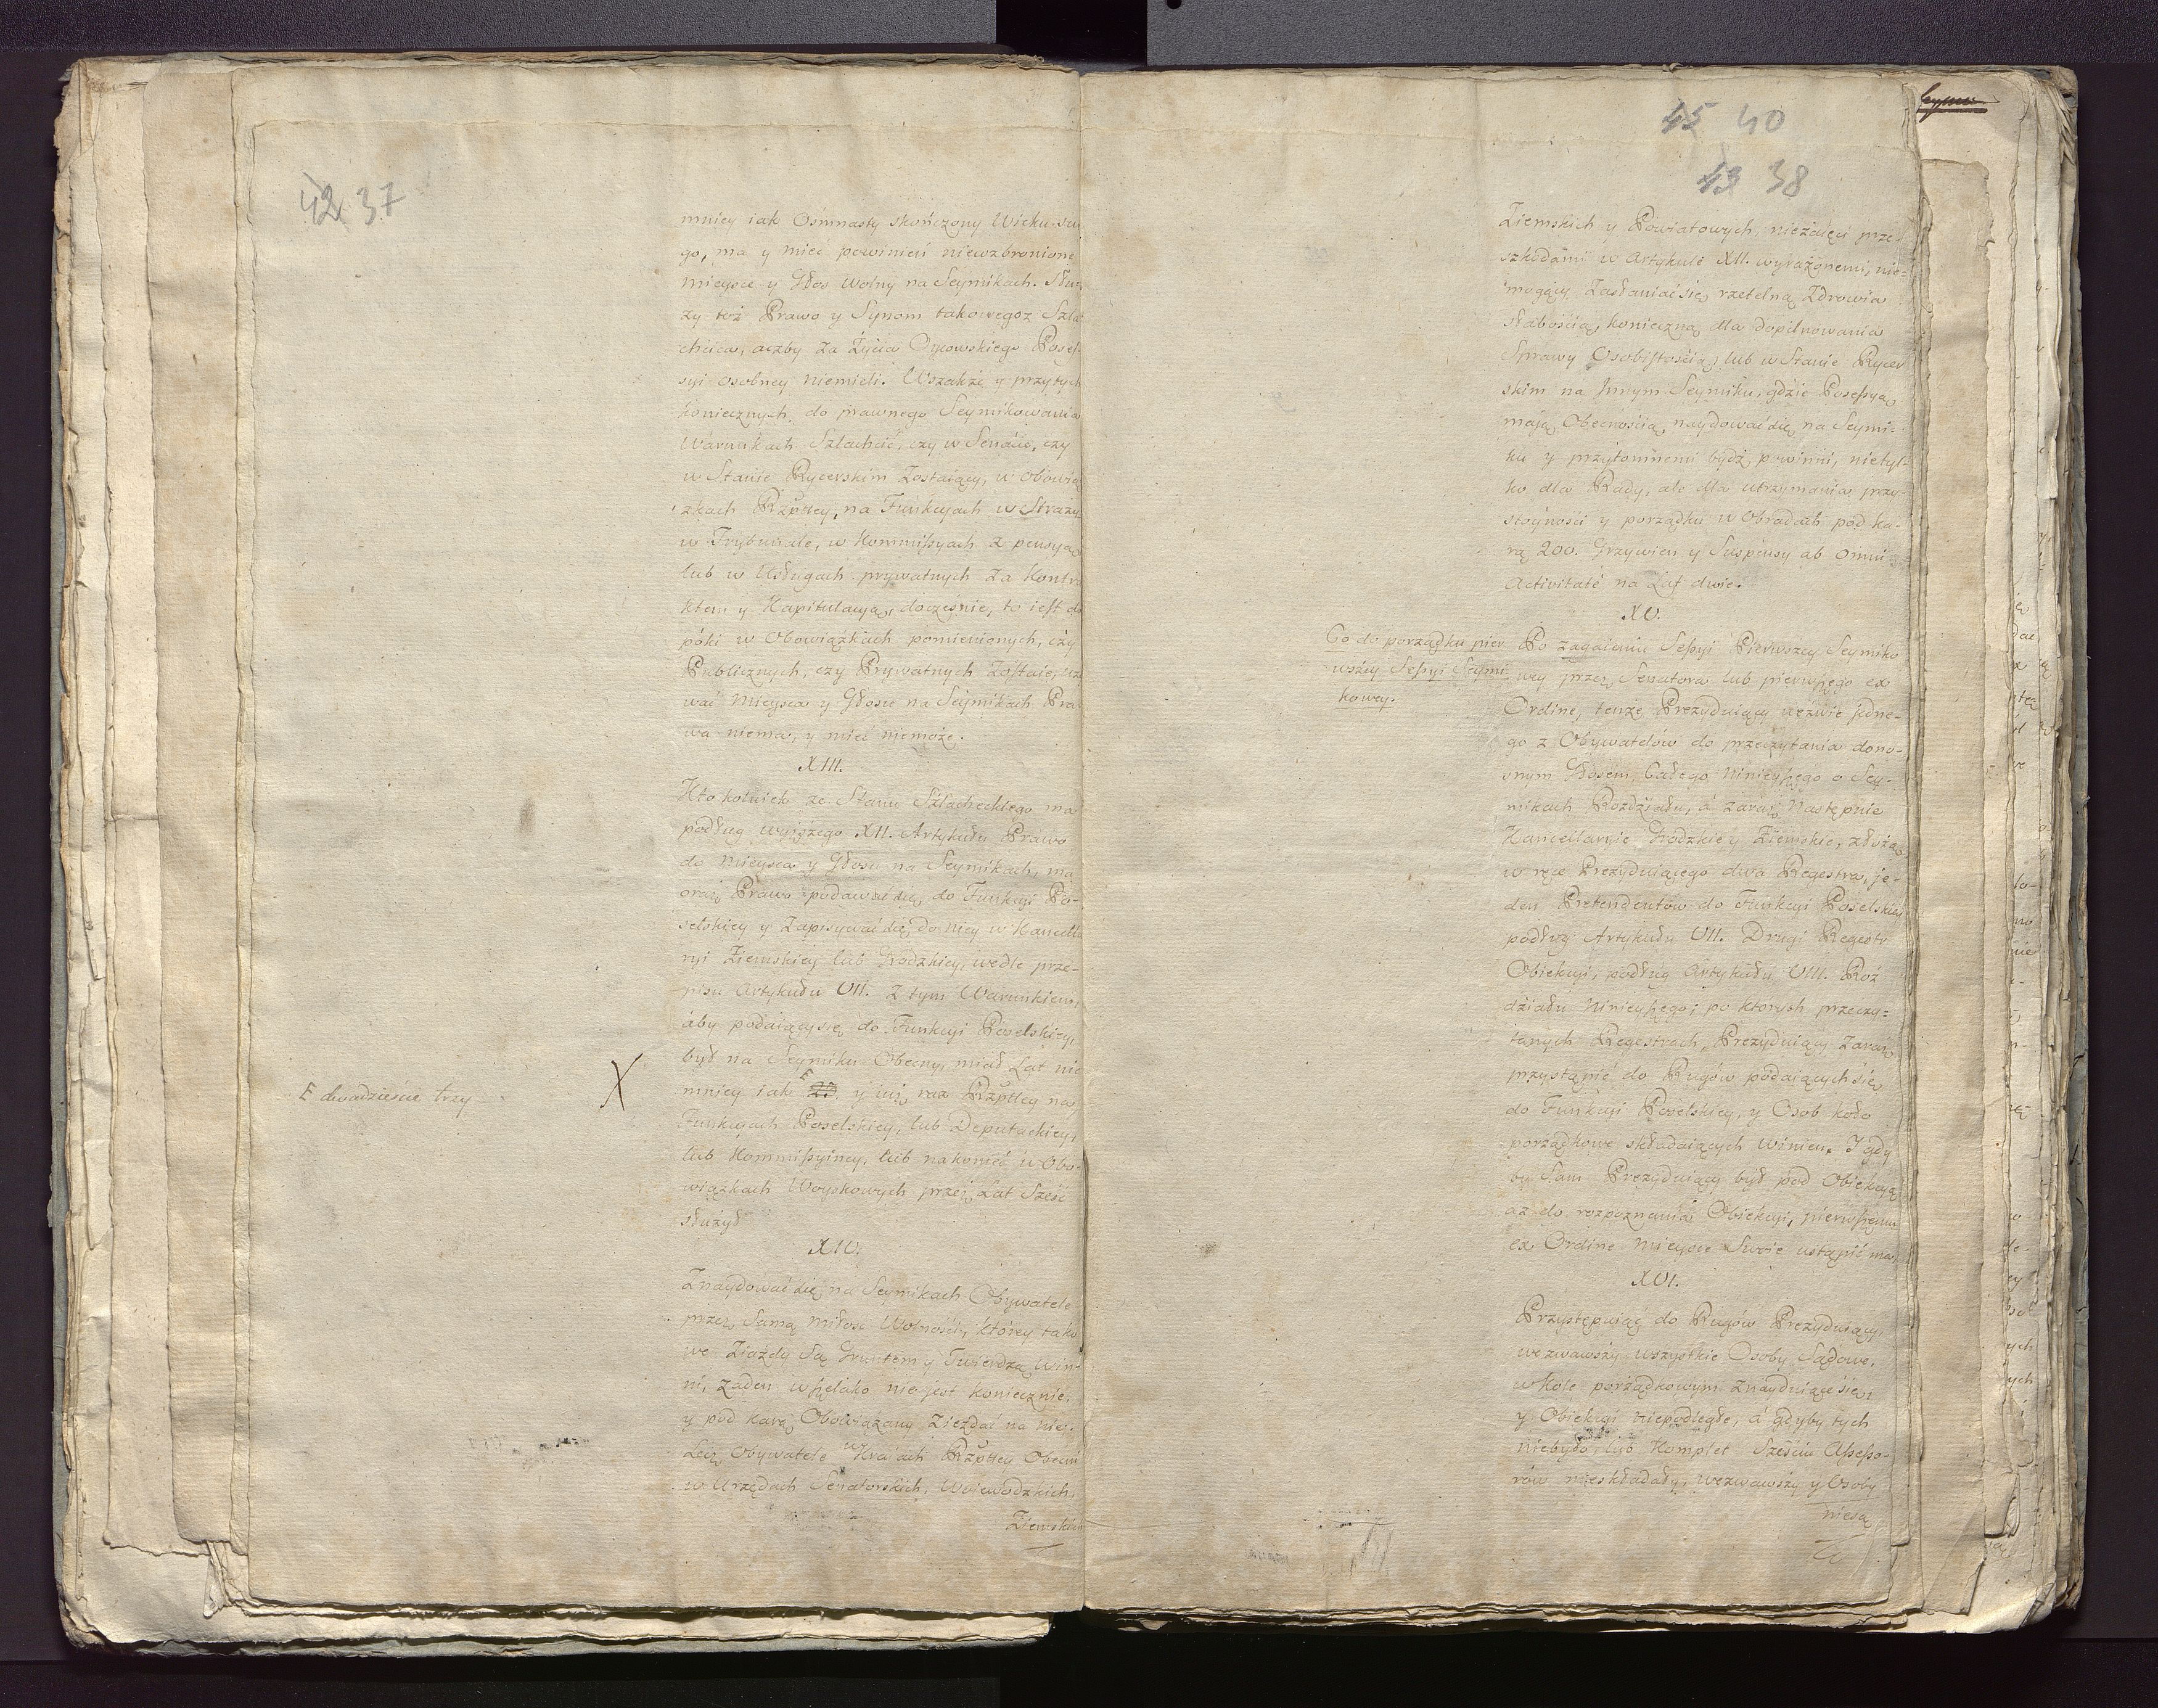 42 37
mniey iak Osmnasty skończony Wieku swe
go, ma y mieć powinien niewzbronione
mieysce y Głos wolny na Seymikach. Słu-
zy też Prawo y Synom takowegoz Szla
chcica, aczby za Życia Oycowskiego Posse-
syi osobney niemieli. Wszakże y przy tych
koniecznych do prawnego Seymikowania
Warunkach Szlachcic, czy w Senacie, czy
w Stanie Rycerskim Zostaiący, w obowią
zkach Rzpltey, na Funkcyach w Straży
w Trybunale, w Kommissyach z pensyą
lub w Usługach prywatnych za Kontra
ktem y Kapitulacyą, docześnie, to iest do
póki w Obowiązkach pomienionych, czy
Publicznych, czy Prywatnych Zostaie, uży
wać Mieysca y Głosu na Seymikach Pra
wa niema, y mieć niemoże.
XIII.
Kto kolwiek ze Stanu Szlacheckiego ma
podług wyższego XII. Artykułu Prawo
do Mieysca y Głosu na Seymikach, ma
oraz Prawo podawać się do Funkcyi Po-
selskiey y Zapisywać się do niey w Kancella
ryi Ziemskiey lub Grodzkiey, wedle prze-
pisu Artykułu VII. z tym Warunkiem,
aby podaiący się do Funkcyi Poselskiey,
był na Seymiku Obecny, miał Lat nie
mniey iak F 23. y iuż raz Rzpltey na
F dwadzieścia trzy
X
Funkcyach Poselskiey, lub Deputackiey,
lub Kommissyiney, lub nakoniec w Obo-
wiązkach Woyskowych przez Lat Sześć
służył
XIV.
Znaydować się na Seymikach Obywatele
przez Samą miłość Wolności, którey tako
we Ziazdy Są Gruntem y Twierdzą Win-
ni, żaden wszelako nie jest koniecznie,
y pod karą Obowiązany Zieżdać na nie.
Lecz Obywatele w Kraiach Rzpltey Obecni
w Urzędach Senatorskich, Woiewodzkich,
Ziemskich
45 40
43 38
Ziemskich y Powiatowych, niezaięci prze-
szkodami w Artykule XII. wyrażonemi, nie-
mogący Zasłaniać się rzetelną Zdrowia
słabością, konieczną dla dopilnowania
Sprawy Osobistością, lub w Stanie Rycer
skim na Innym Seymiku, gdzie Posessyą
mają Obecnością, naydować się na Seymi-
ku y przytomnemi bydź powinni, nietyl-
ko dla Rady, ale dla utrzymania przy-
stoyności y porządku w Obradach pod ka-
rą 200. Grzywien y Suspensy ab omni
Activitate na Lat dwie.
XV.
Co do porządku pier
wszey Sessyi Seymi
kowey.
Po zagaieniu Sessyi Pierwszey Seymiko
wey przez Senatora lub pierwszego ex
Ordine, tenże Prezyduiący wezwie jedne-
go z Obywatelów do przeczytania dono-
snym Głosem, Całego Ninieyszego o Sey-
mikach Rozdziału, á zaraz Następnie
Kancellarye Grodzkie y Ziemskie, złożą
w ręce Prezyduiącego dwa Regestra, je-
den Pretendentów do Funkcyi Poselskiey
podług Artykułu VII. Drugi Regestr
Obiekcyi, podług Artykułu VIII. Roz
działu Ninieyszego; po ktorych przeczy-
tanych Regestrach, Prezyduiący zaraz
przystąpić do Rugów podaiących się
do Funkcyi Poselskiey, y Osob koło
porządkowe składaiących winien. I gdy
by Sam Prezyduiący był pod Obiekcyą
aż do rozpoznania Obiekcyi, pierwszemu
ex Ordine mieysce Swoie ustąpić ma.
XVI.
Przystępuiąc do Rugów Prezyduiący,
wezwawszy wszystkie Osoby Sądowe,
w Kole porządkowym znayduiące się,
y Obiekcyi niepodległe, á gdyby tych
niebyło, lub Komplet Sześciu Assesso-
rów nieskładały, wezwawszy y Osoby
niesą